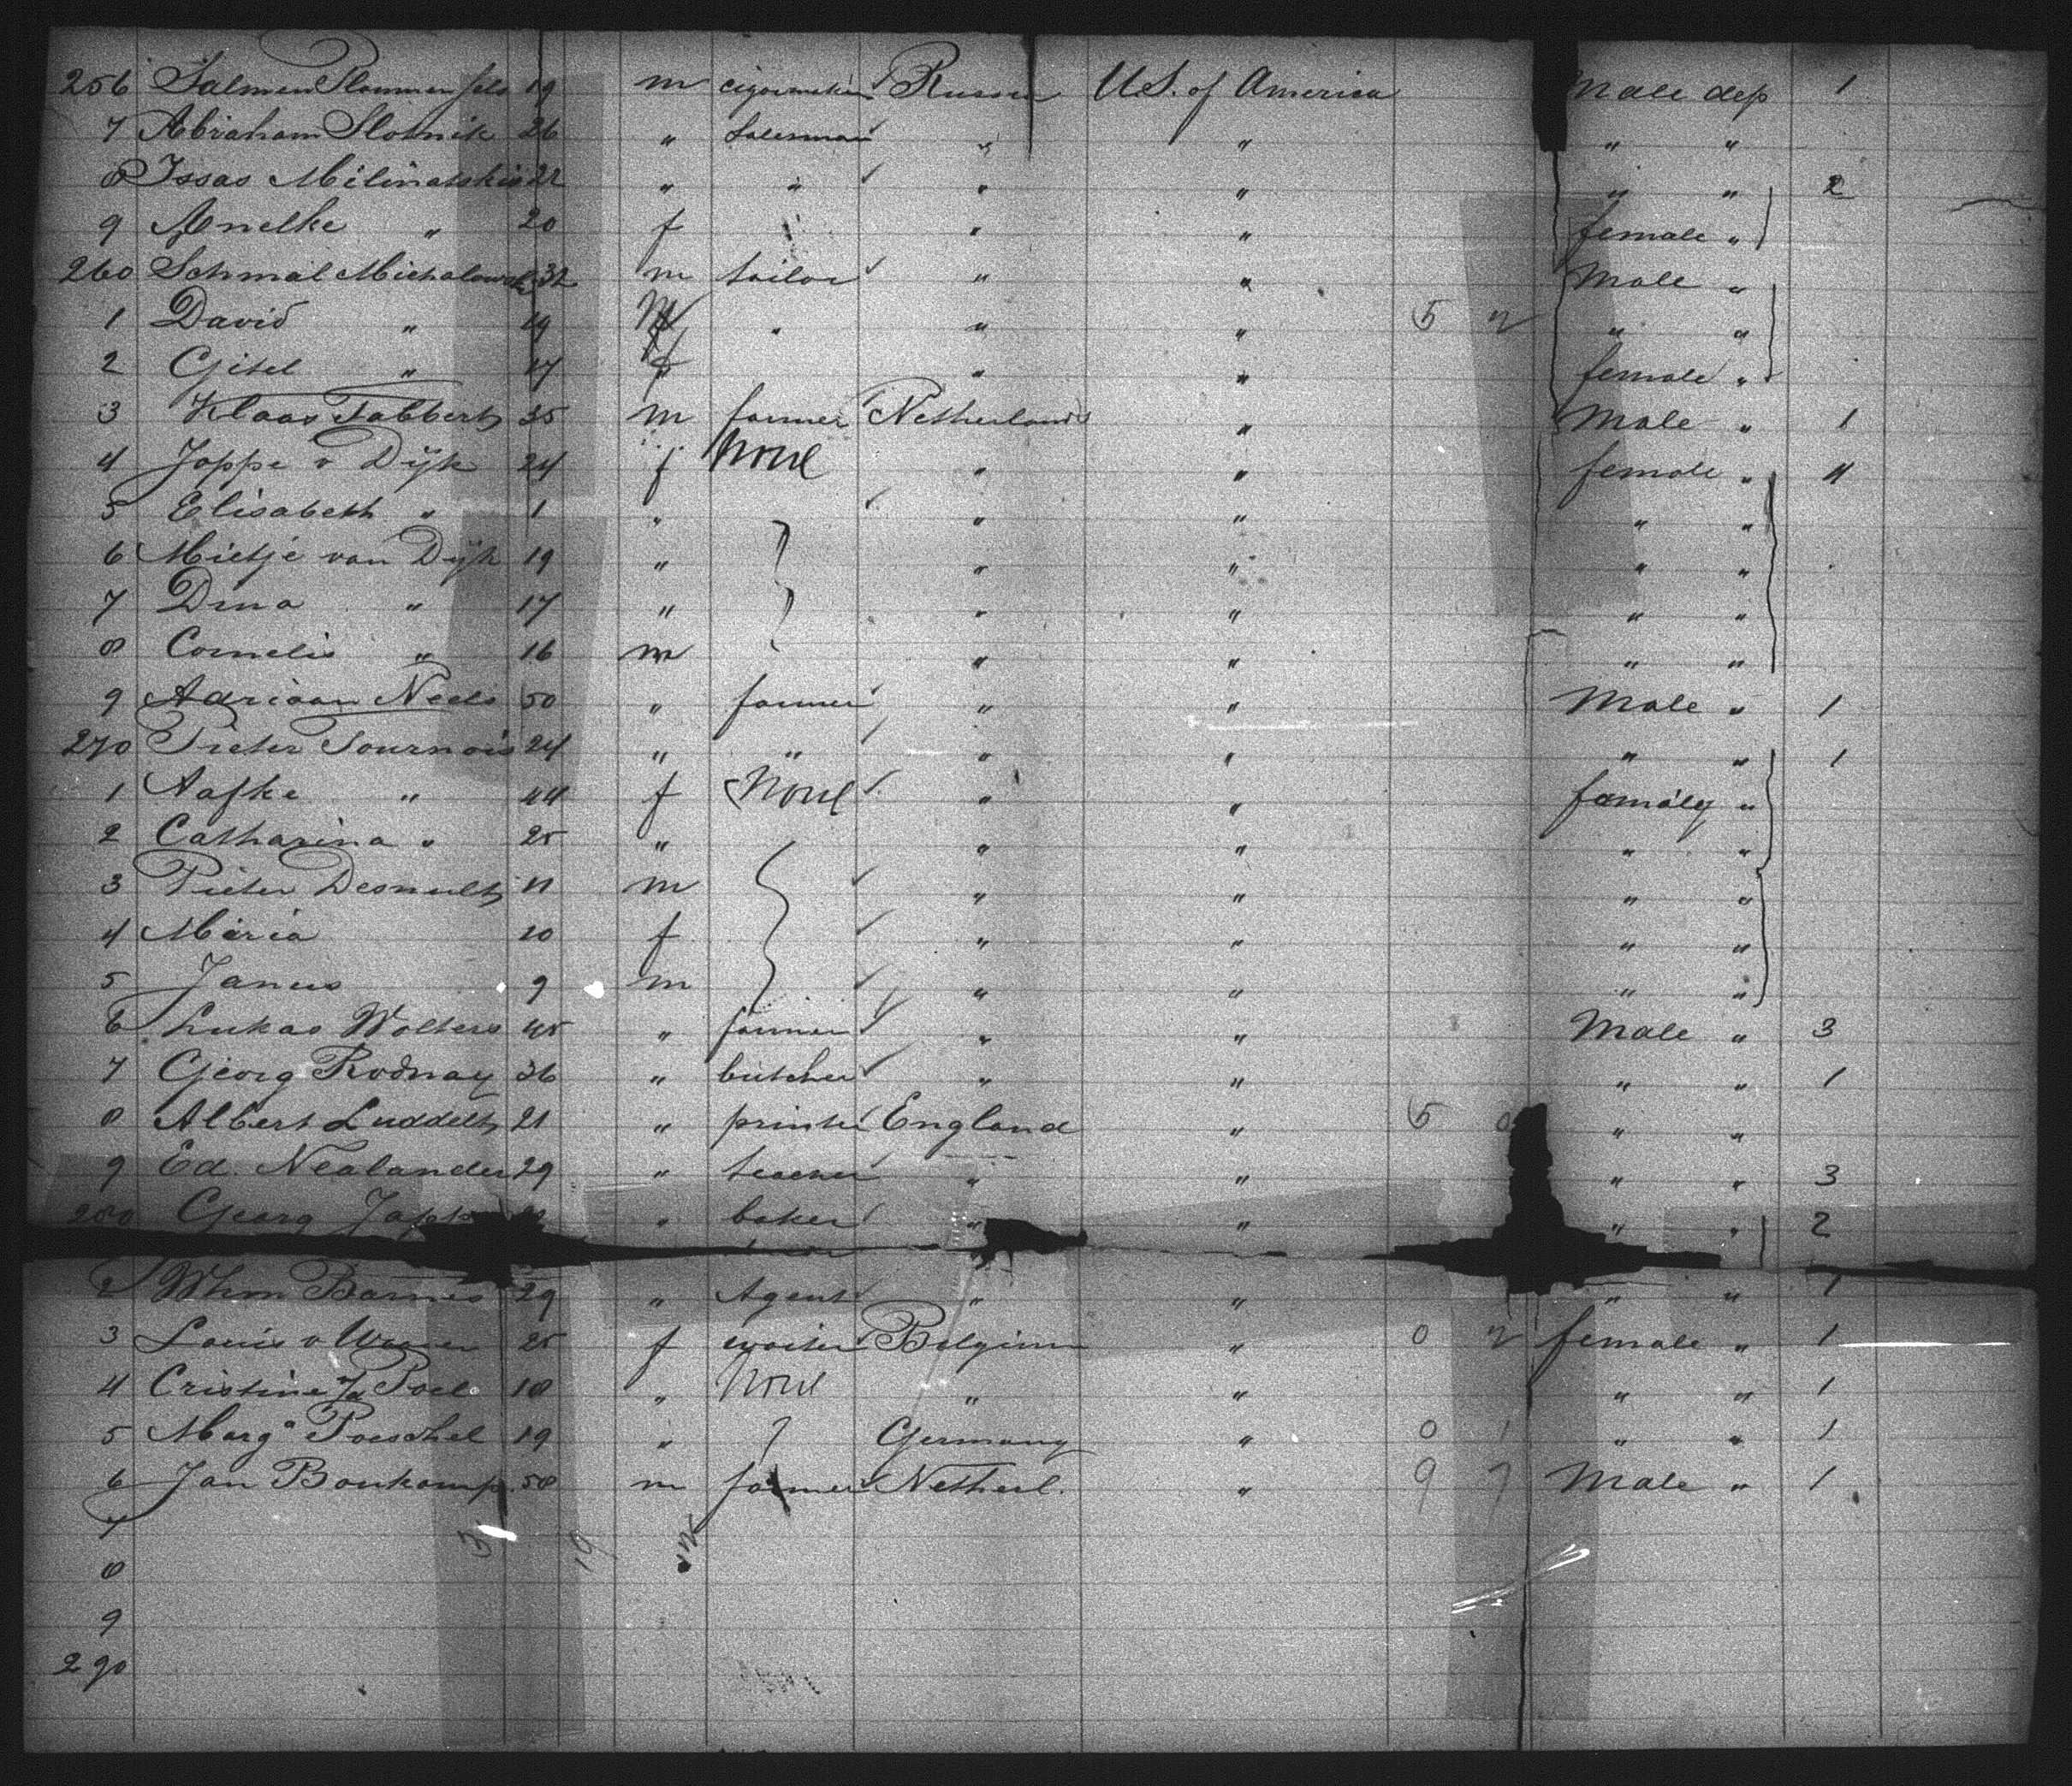 256 Salmen 19 m cigarmaker Russia U.S. of America Male dep 1
7 Abraham Slotnik 26 " Salesman " " " "
8 Issas 22 " " " " " " 2
9 Amelke " 20 f " " female "
260 Schmal 32 m tailor " " Male "
1 David " 19 " " " 5 " "
2 Gitel " 17 f " " female "
3 Klaas Tabbert 35 m farmer Netherlands " Male " 1
4 Joppe v Dijk 24 f None " " female " 4
5 Elisabeth " 1 " " " " "
6 Mietje van Dijk 19 " " " " "
7 Dina " 17 " " " " "
8 Cornelis " 16 m " " " "
9 Adriaan Neels 50 " farmer " " Male " 1
270 Pieter Tournois 24 " " " " " " 1
1 Aafke " 44 f None " " family "
2 Catharina " 25 " " " " "
3 Pieter 11 m " " " "
4 Maria 10 f " " " "
5 Janus 9 m " " " "
6 Lukas Wolters 45 " farmer " " Male " 3
7 Georg Rodnay 36 " butcher " " " " 1
8 Albert 21 " printer England " 5 " "
9 Ed. Nealander 29 " teacher " " " " 3
280 Georg " baker " " " " 2
2 Whm Barnes 29 " Agent " " " " 1
3 Louis v 25 f waiter Belgium " 0 female " 1
4 Cristine Poel 18 " None " " " " 1
5 Marg Poeschel 19 " Germany " 0 1 " " 1
6 Jan Boukamp 58 m farmer Netherl. " 9 7 Male " 1
7
8
9
290